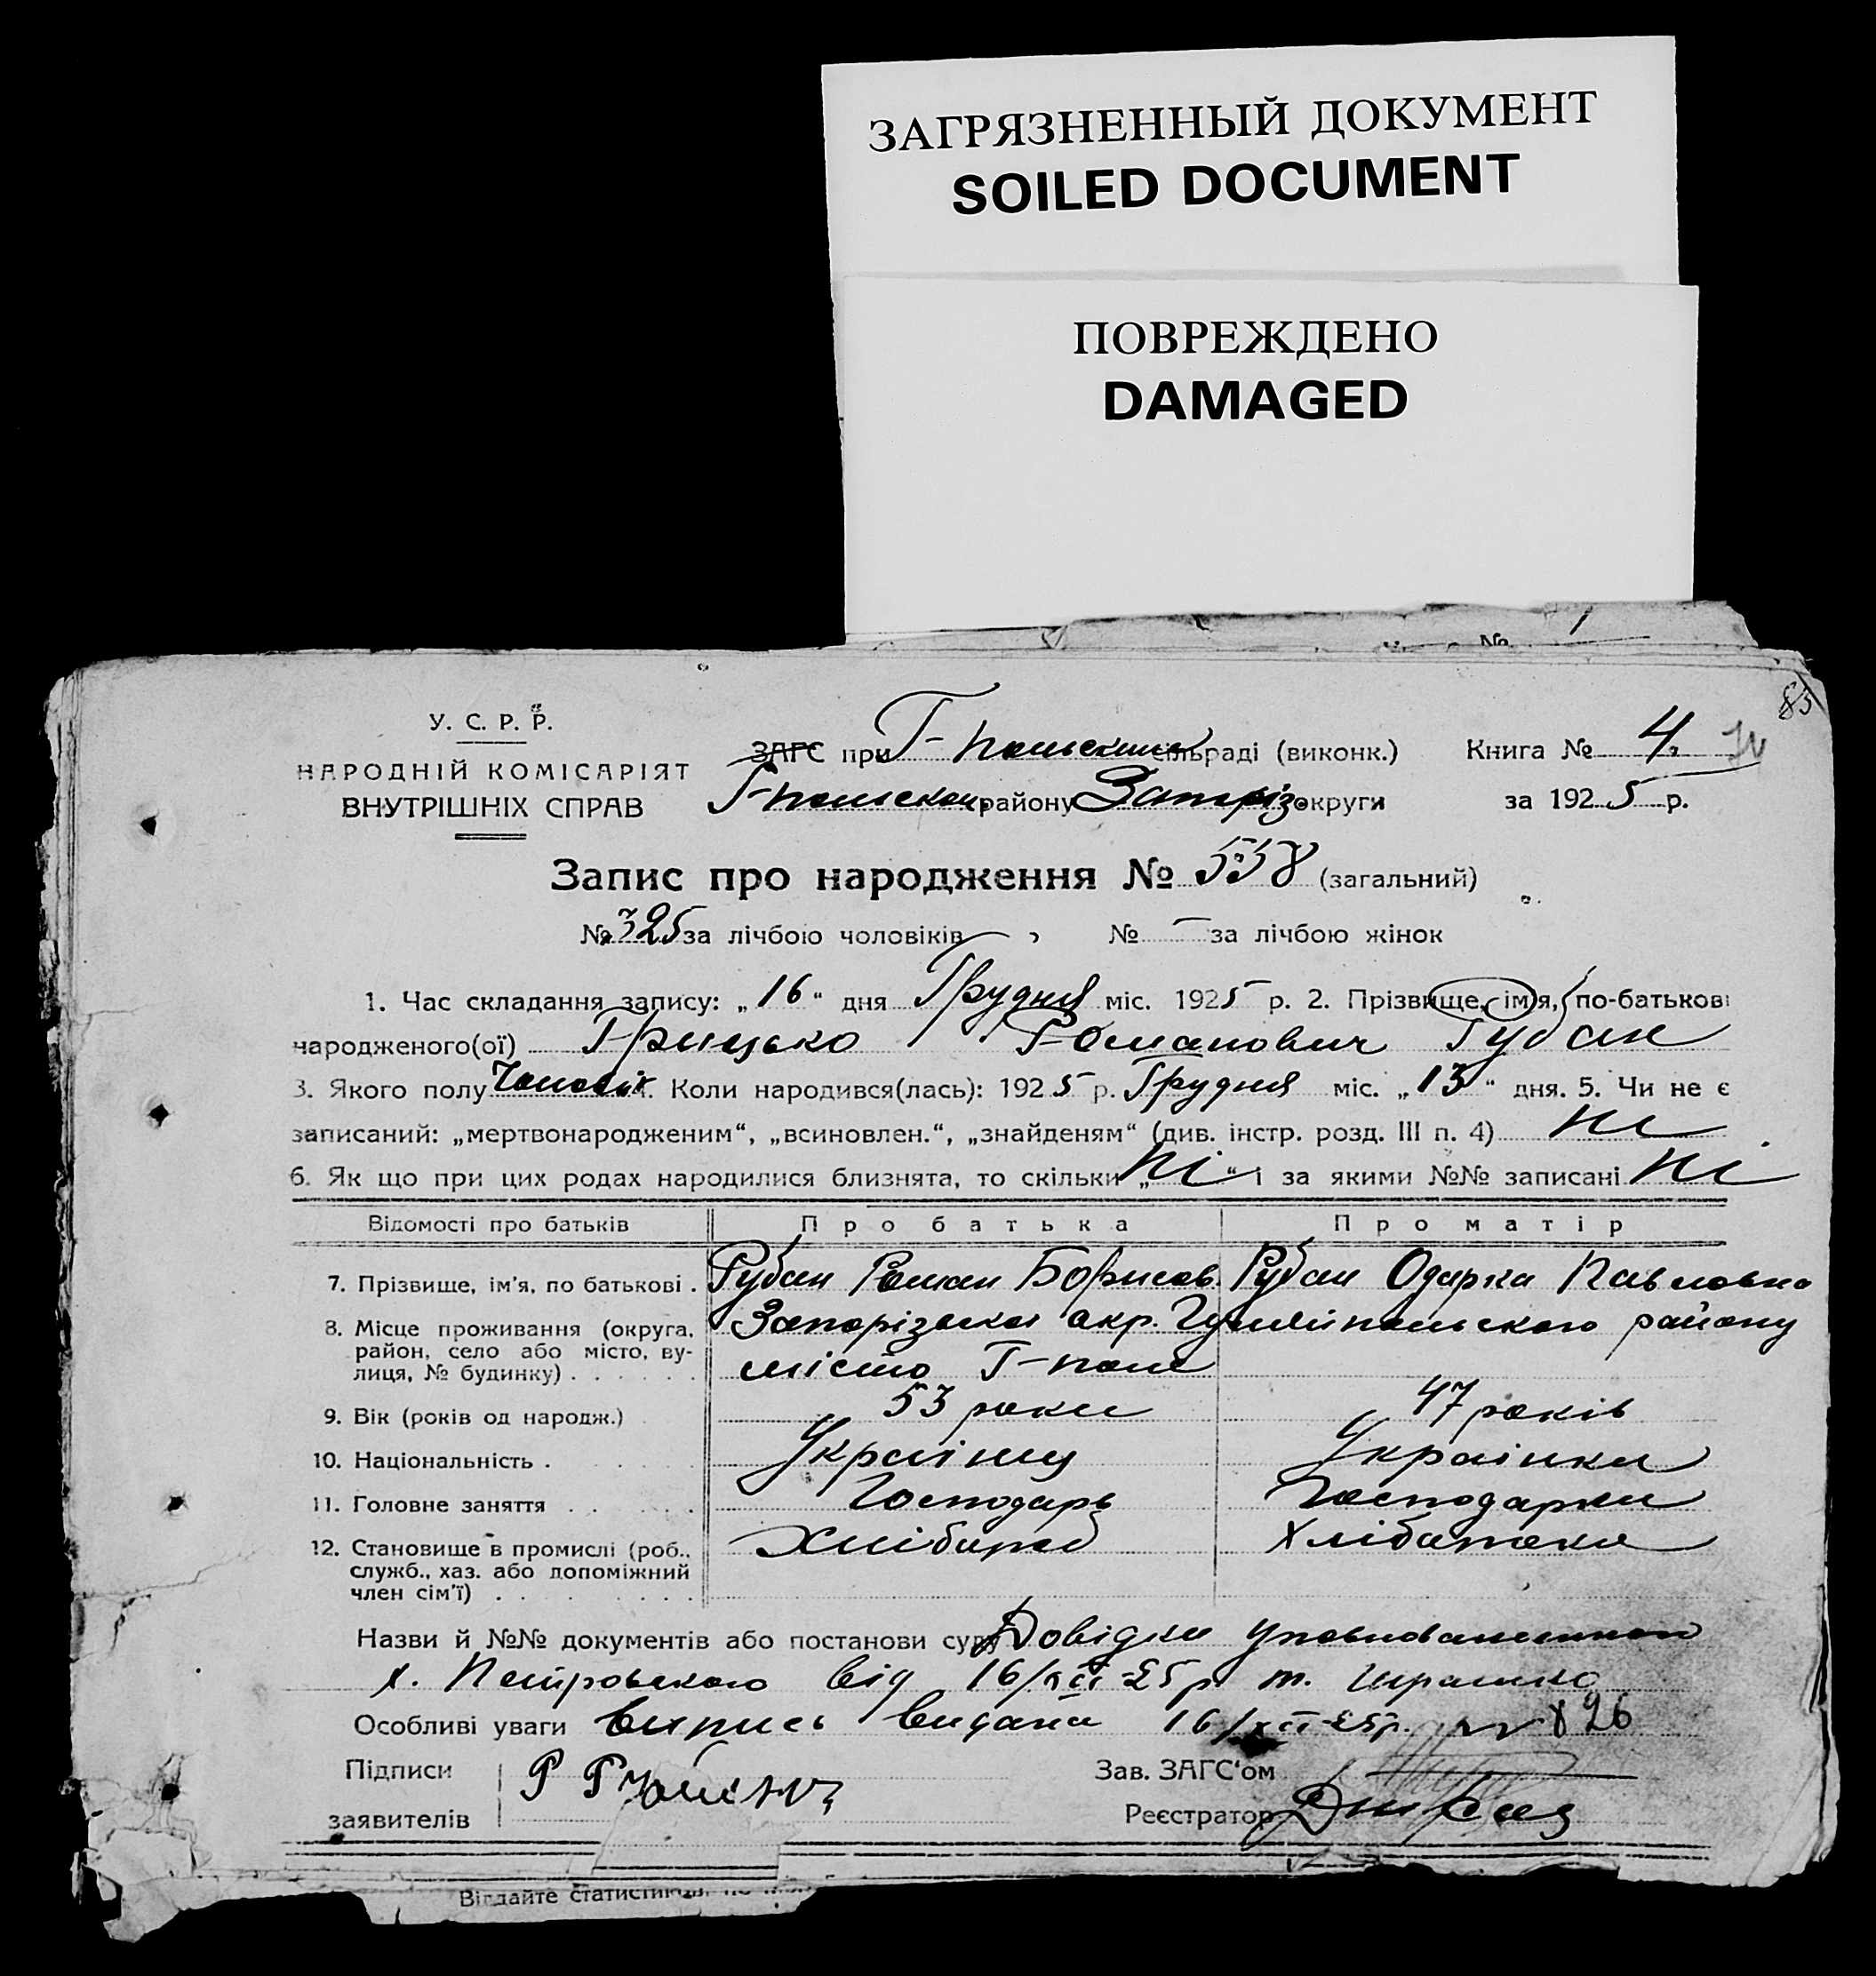 ЗАГРЯЗНЕННЫЙ ДОКУМЕНТ
SOILED DOCUMENT
ПОВРЕЖДЕНО
DAMAGED
№
85
У. С. Р. Р.
НАРОДНІЙ КОМІСАРІЯТ
ВНУТРІШНІХ СПРАВ
ЗАГС при Г-польскій сільраді (виконк.) Книга № 4
Г-польского району Запоріз. округи за 1925 р.
Запис про народження № 558 (загальний)
№ 325 за лічбою чоловіків, № — за лічбою жінок
1. Час складання запису: „16“ дня Грудня міс. 1925 р. 2. Прізвище, ім'я, по-батькові
народженого(ої) Грицько Романович Рубан
3. Якого полу Чоловік. Коли народився(лась): 1925 р. Грудня міс. „13“ дня. 5. Чи не є
записаний: „мертвонародженим“, „всиновлен.“, „знайденям“ (див. інстр. розд. III п. 4) ні
6. Як що при цих родах народилися близнята, то скільки „ні“ і за якими №№ записані ні
Відомості про батьків Про батька Про матір
7. Прізвище, ім'я, по батькові . Рубан Роман Борисов. Рубан Одарка Павловна
8. Місце проживання (округа, район, село або місто, вулиця, № будинку) . . . . . . Запорізької окр. Гуляйпольского району
місто Г-поле
9. Вік (років од народж.) 53 роки 47 років
10. Національність . Українец Українка
11. Головне заняття . . Господарь Господарка
12. Становище в промислі (роб., служб., хаз. або допоміжний член сім'ї) . . Хлібороб Хліборобка
Назви й №№ документів або постанови суду Довідка уповноваженого
х. Петровского від 16/XII-25 р. т.
Особливі уваги Випись видана 16/XII-25р. № 826
Підписи
заявителів
Р Рубан
Зав. ЗАГС'ом
Реєстратор
Віддайте